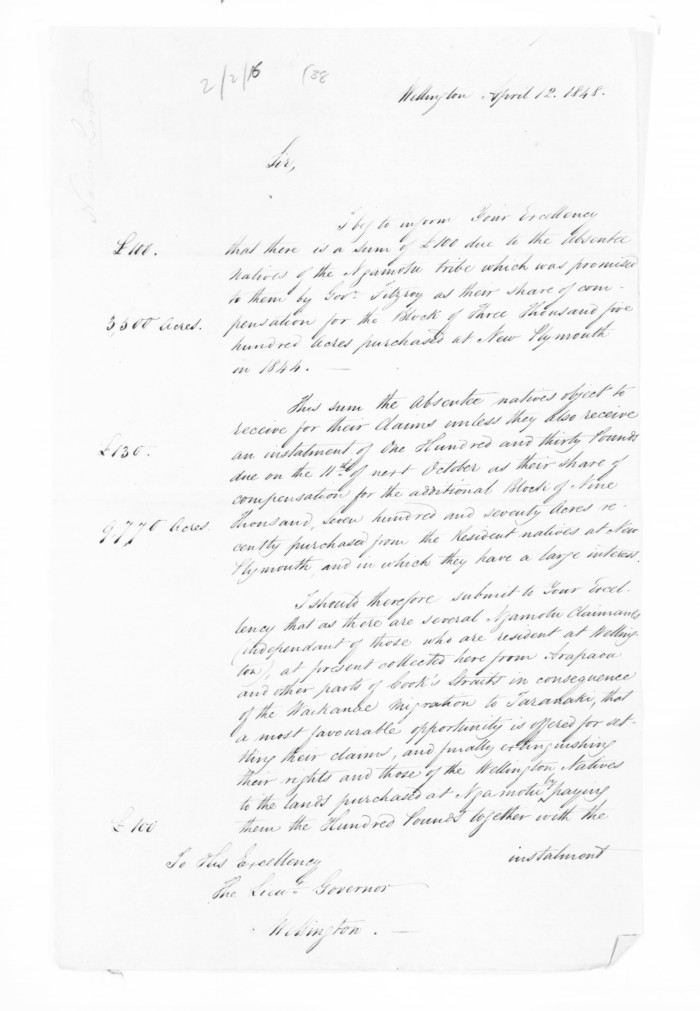 2/2/16 (38
Wellington April 12. 1848.
Sir,
I beg to inform Your Excellency
£100. that there is a sum of £100 due to the absentee
natives of the Ngamotu tribe which was promised
to them by Govr. Fitzroy as their share of com-
3500 Acres. pensation for the Block of Three Thousand five
hundred Acres purchased at New Plymouth
in 1844. —
This sum the Absentee natives object to
receive for their Claims unless they also receive
£130. an instalment of One Hundred and thirty Pounds
due on the 11th of next October as their share of
compensation for the additional Block of Nine
9770 Acres. Thousand, seven hundred and seventy Acres re-
cently purchased from the Resident natives at New
Plymouth and in which they have a large interest.
I should therefore submit to Your Excel-
lency that as there are several Ngamotu Claimants
(independant of those who are resident at Welling-
ton), at present collected here from Arapaoa
and other parts of Cook's Straits in consequence
of the Waikanae Migration to Taranaki, that
a most favourable opportunity is offered for set-
tling their claims, and finally extinguishing
their rights and those of the Wellington Natives
to the lands purchased at Ngamotu by paying
£100 them the Hundred Pounds together with the
instalment
To His Excellency
The Lieut. Governor
Wellington. —